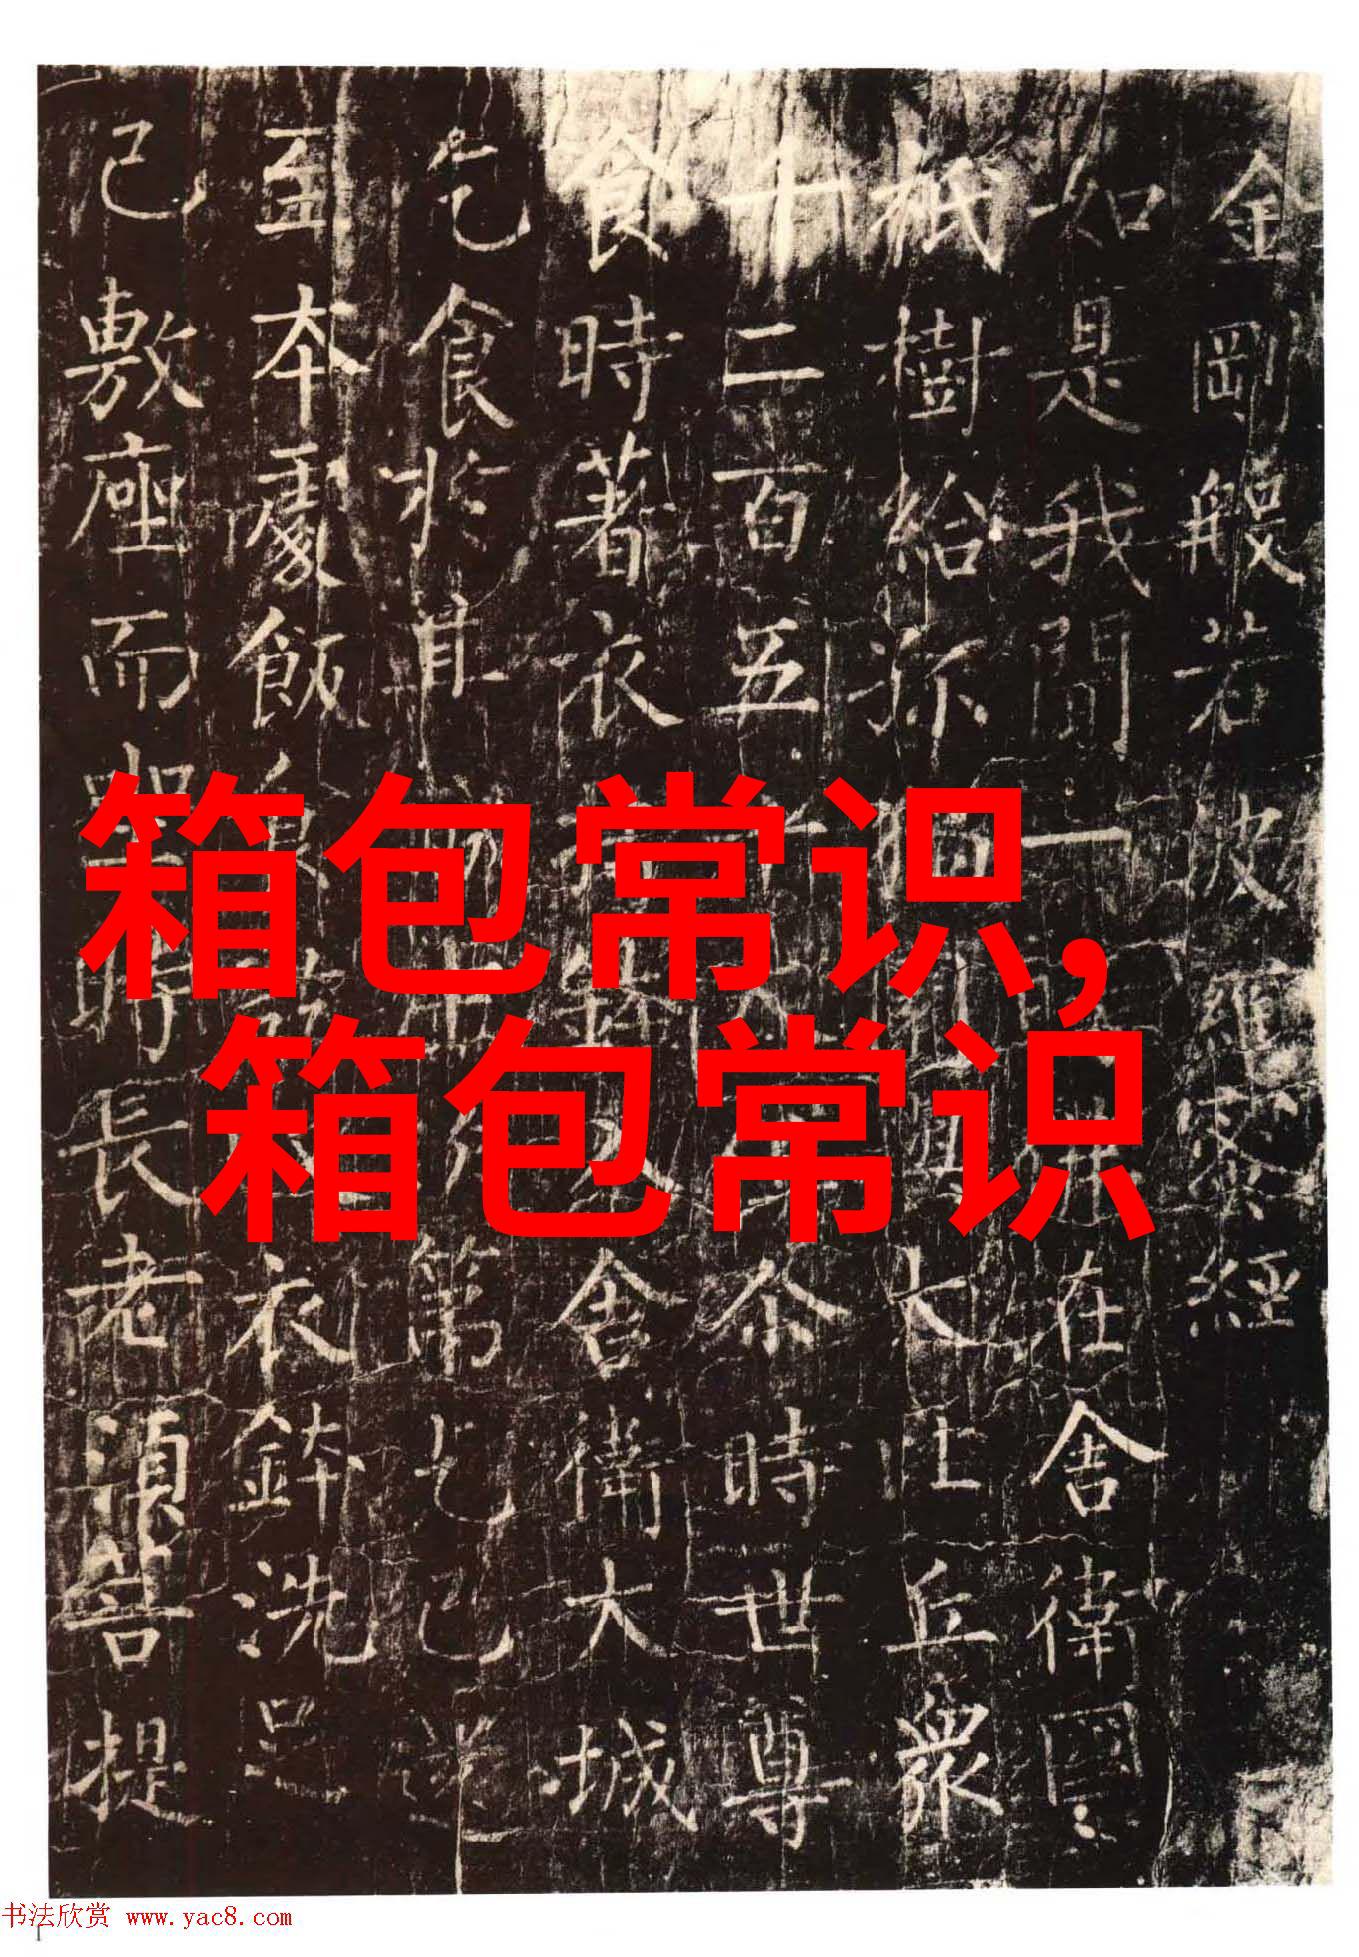 金剛般若波羅蜜經
如是我聞一在舍衛國
祇樹給孤大比丘衆
十二百五人尒時世尊
食時著衣鉢入舍衛大城
乞食於其城第乞已還
至本處飯衣鉢洗足
已敷座而坐時長老須菩提
箱包常识,
箱包常识
书法欣赏 www.yac8.com